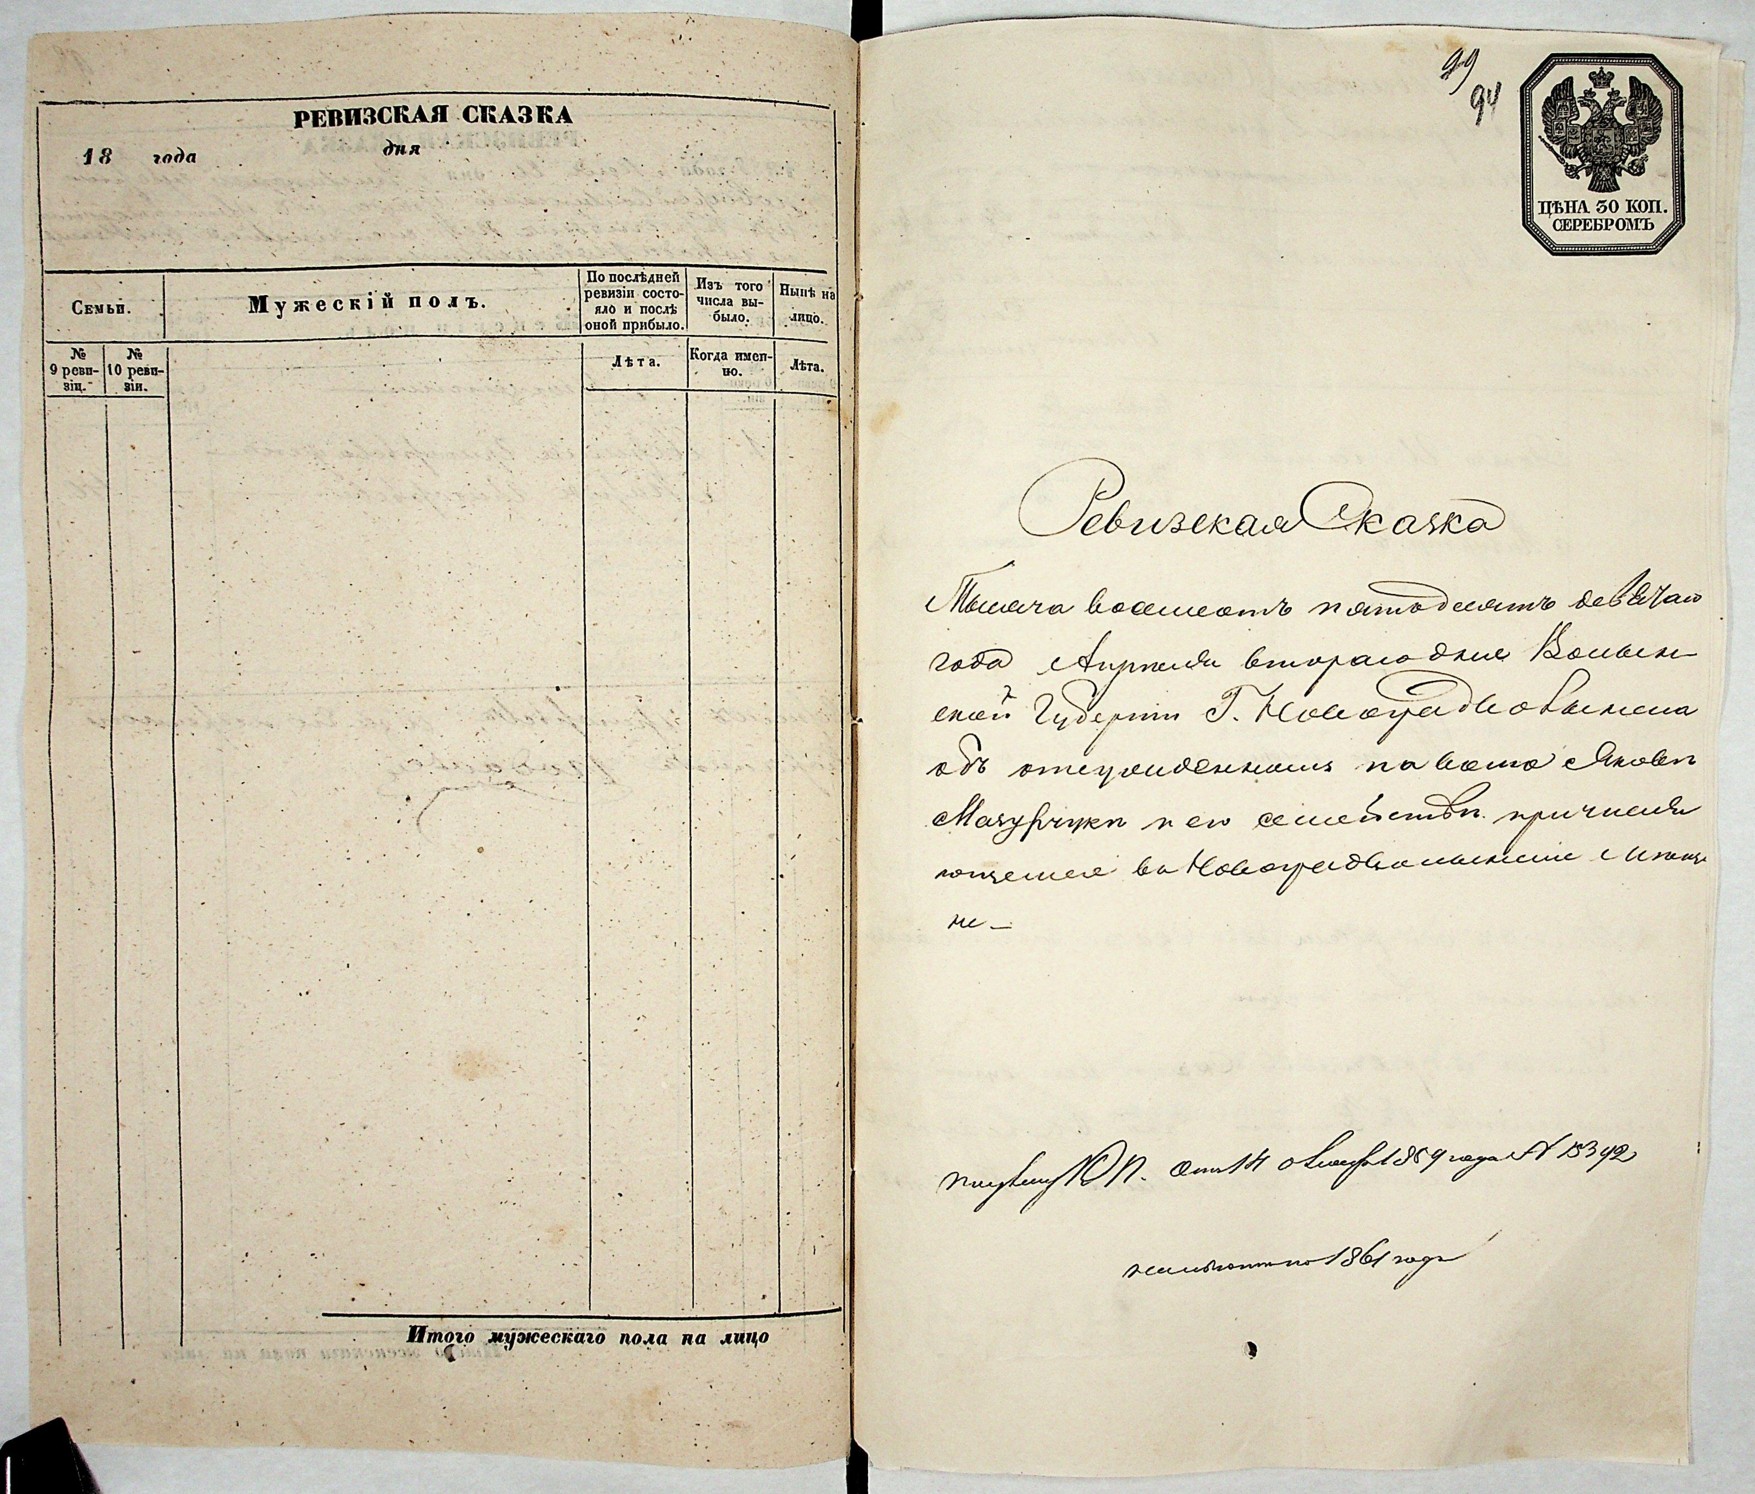 РЕВИЗСКАЯ СКАЗКА
18 года дня
Семьи.
Мужескій полъ.
По послѣдней
ревизіи состо-
яло и послѣ
оной прибыло.
Изъ того
числа вы-
было.
Нынѣ на
лицо.
№
9 реви-
зіи.
№
10 реви-
зіи.
Лѣта.
Когда имен-
но.
Лѣта.
Итого мужескаго пола на лицо
99
94
ЦѢНА 30 КОП.
СЕРЕБРОМЪ
Ревизская Сказка
Тысяча восемсотъ пятдесятъ девятаго
года Апреля втораго дня Волын
ской Губерніи Г. Новоградволынска
объ отпущенномъ на волю Якове
Мазурчуке и его семействе причисля
ющемся въ Новоградволынские Мѣща
не
отъ 14 1859 года № 15392
1861 года